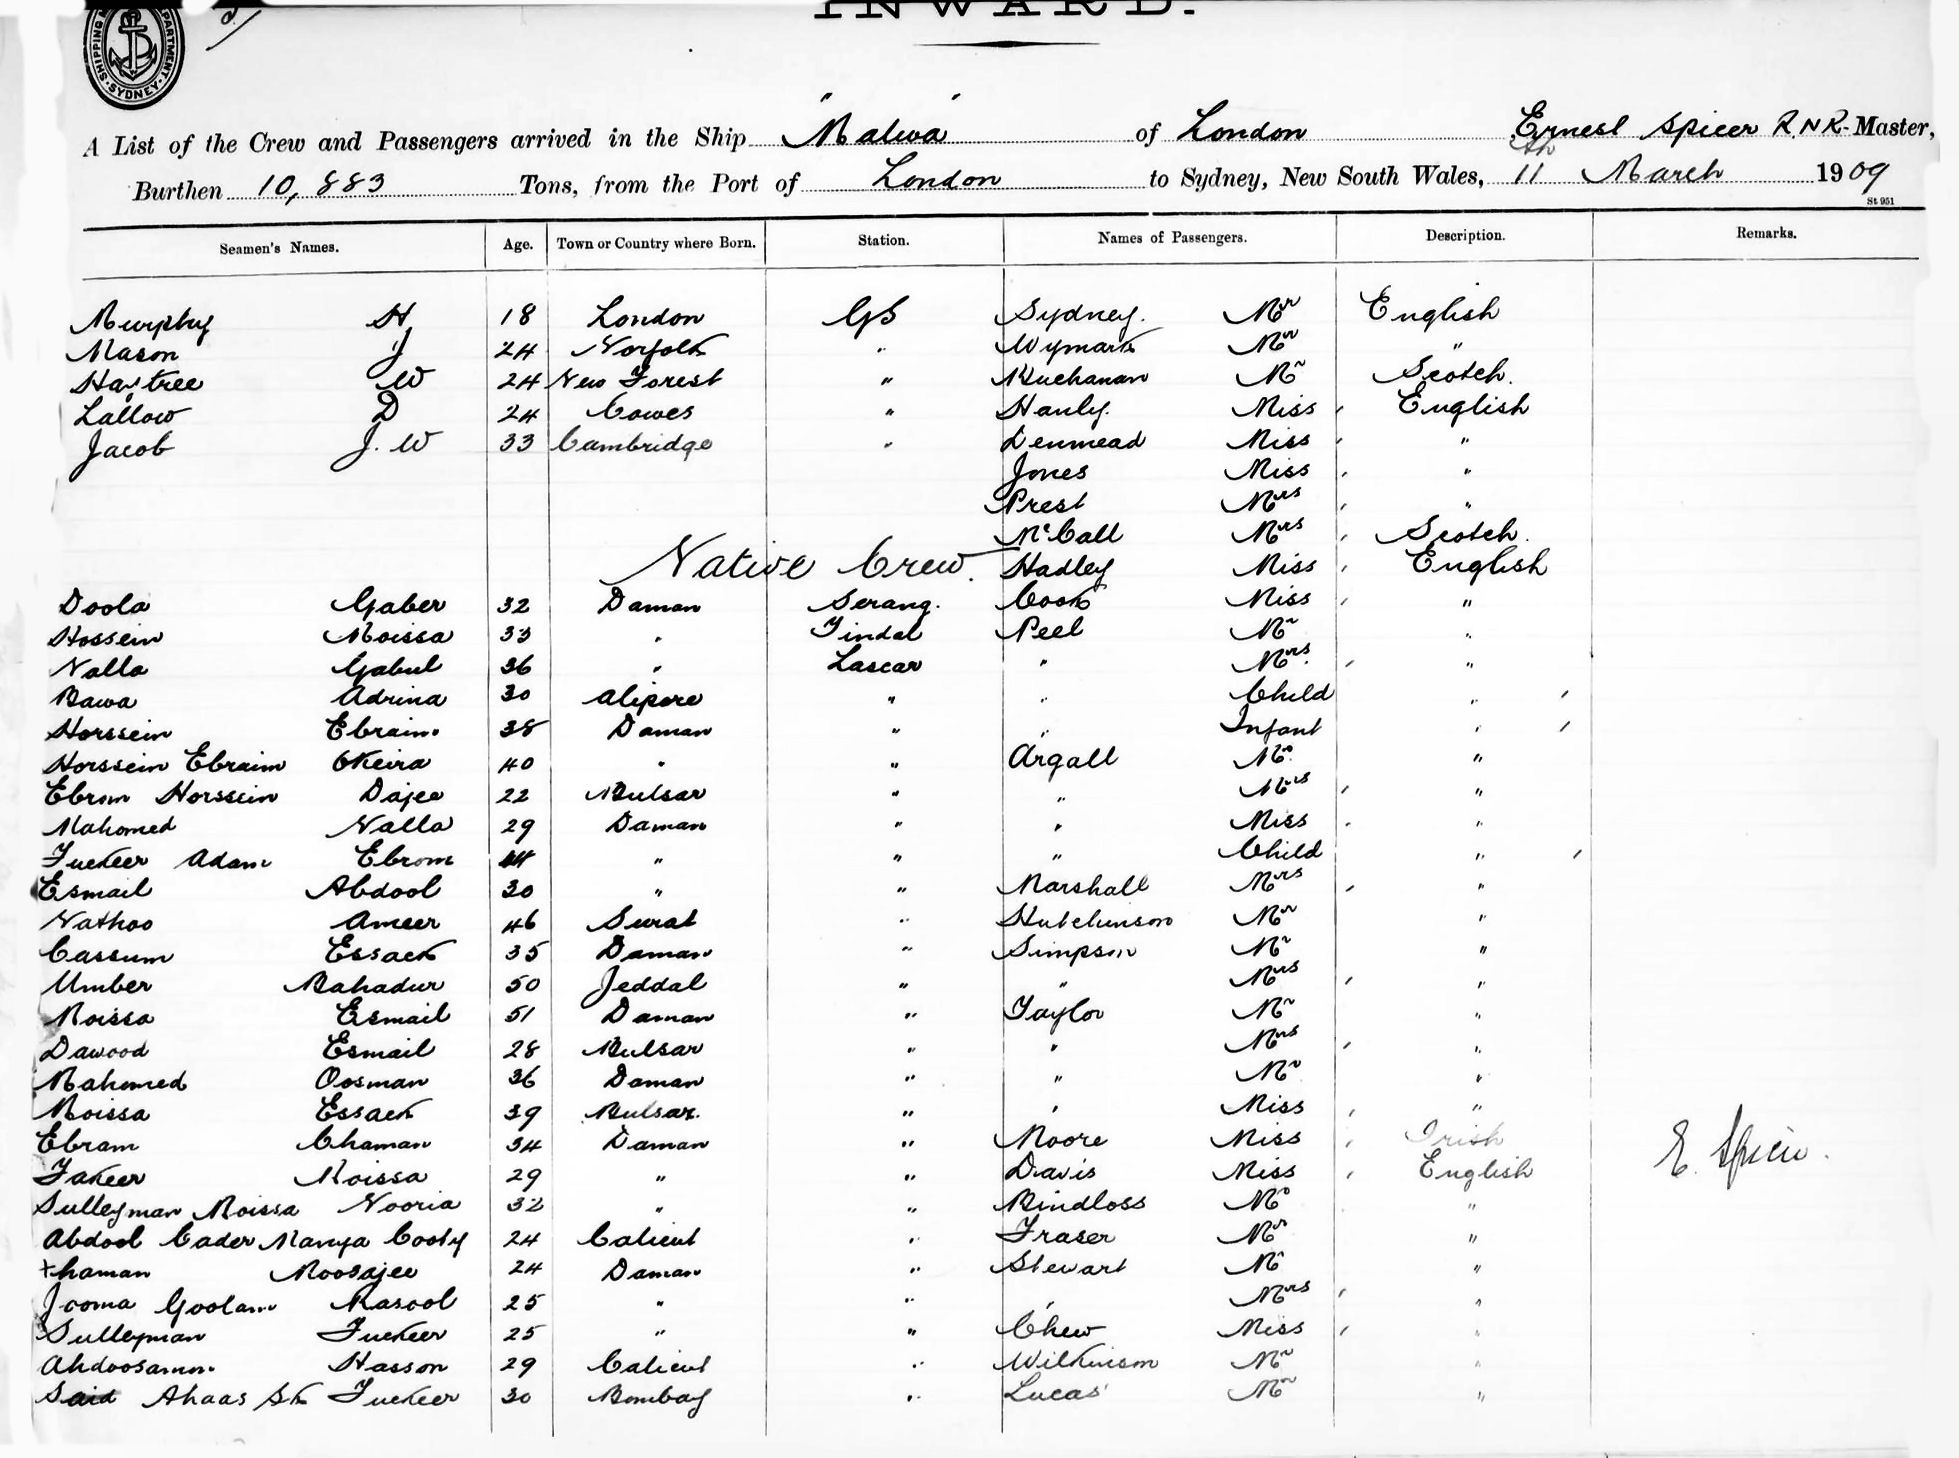 INWARD.
SHIPPING DEPARTMENT SYDNEY
A List of the Crew and Passengers arrived in the Ship "Malwa" of London Ernest Spicer R.N.R. Master,
Burthen 10,883 Tons, from the Port of London to Sydney, New South Wales, 11th March 1909
St 951
Seamen's Names. Age. Town or Country where Born. Station. Names of Passengers. Description. Remarks.
Murphy H 18 London GS Sydney. Mr English
Mason J 24 Norfolk " Wymark Mr "
Haytree W 24 New Forest " Buchanan Mr Scotch.
Lallow D 24 Cowes " Hanly. Miss English
Jacob J. W 33 Cambridge " Denmead Miss "
Jones Miss "
Prest Mrs "
McCall Mrs Scotch.
Native Crew. Hadley Miss English
Doola Gaber 32 Daman Serang. Cook Miss "
Hossein Moissa 33 " Tindal Peel Mr "
Nalla Gabul 36 " Lascar " Mrs. "
Bawa Adrina 30 Alipore " " Child "
Horssein Ebraim 38 Daman " " Infant "
Horssein Ebraim Okeira 40 " " Argall Mr. "
Ebrom Horssein Dajee 22 Bulsar " " Mrs "
Mahomed Nalla 29 Daman " " Miss "
Fuckeer Adam Ebrom 44 " " " Child "
Esmail Abdool 30 " " Marshall Mrs "
Nathoo Ameer 46 Surat " Hutchinson Mr "
Cassum Essack 35 Daman " Simpson Mr "
Umber Bahadur 50 Jeddal " " Mrs "
Moissa Esmail 51 Daman " Taylor Mr "
Dawood Esmail 28 Bulsar " " Mrs "
Mahomed Oosman 36 Daman " " Mr "
Moissa Essack 39 Bulsar. " " Miss "
Ebram Chaman 34 Daman " Moore Miss Irish
Fakeer Moissa 29 " " Davis Miss English E. Spicer.
Sulleyman Moissa Nooria 32 " " Bindloss Mr "
Abdool Cader Mamya Cooty 24 Calicut " Fraser Mr "
Chaman Moosajee 24 Daman " Stewart Mr "
Jooma Goolam Rasool 25 " " " Mrs "
Sulleyman Fuckeer 25 " " Chew Miss "
Ahdoosamon Hasson 29 Calicut " Wilkinson Mr "
Said Ahaas Sk Fuckeer 30 Bombay " Lucas Mr "